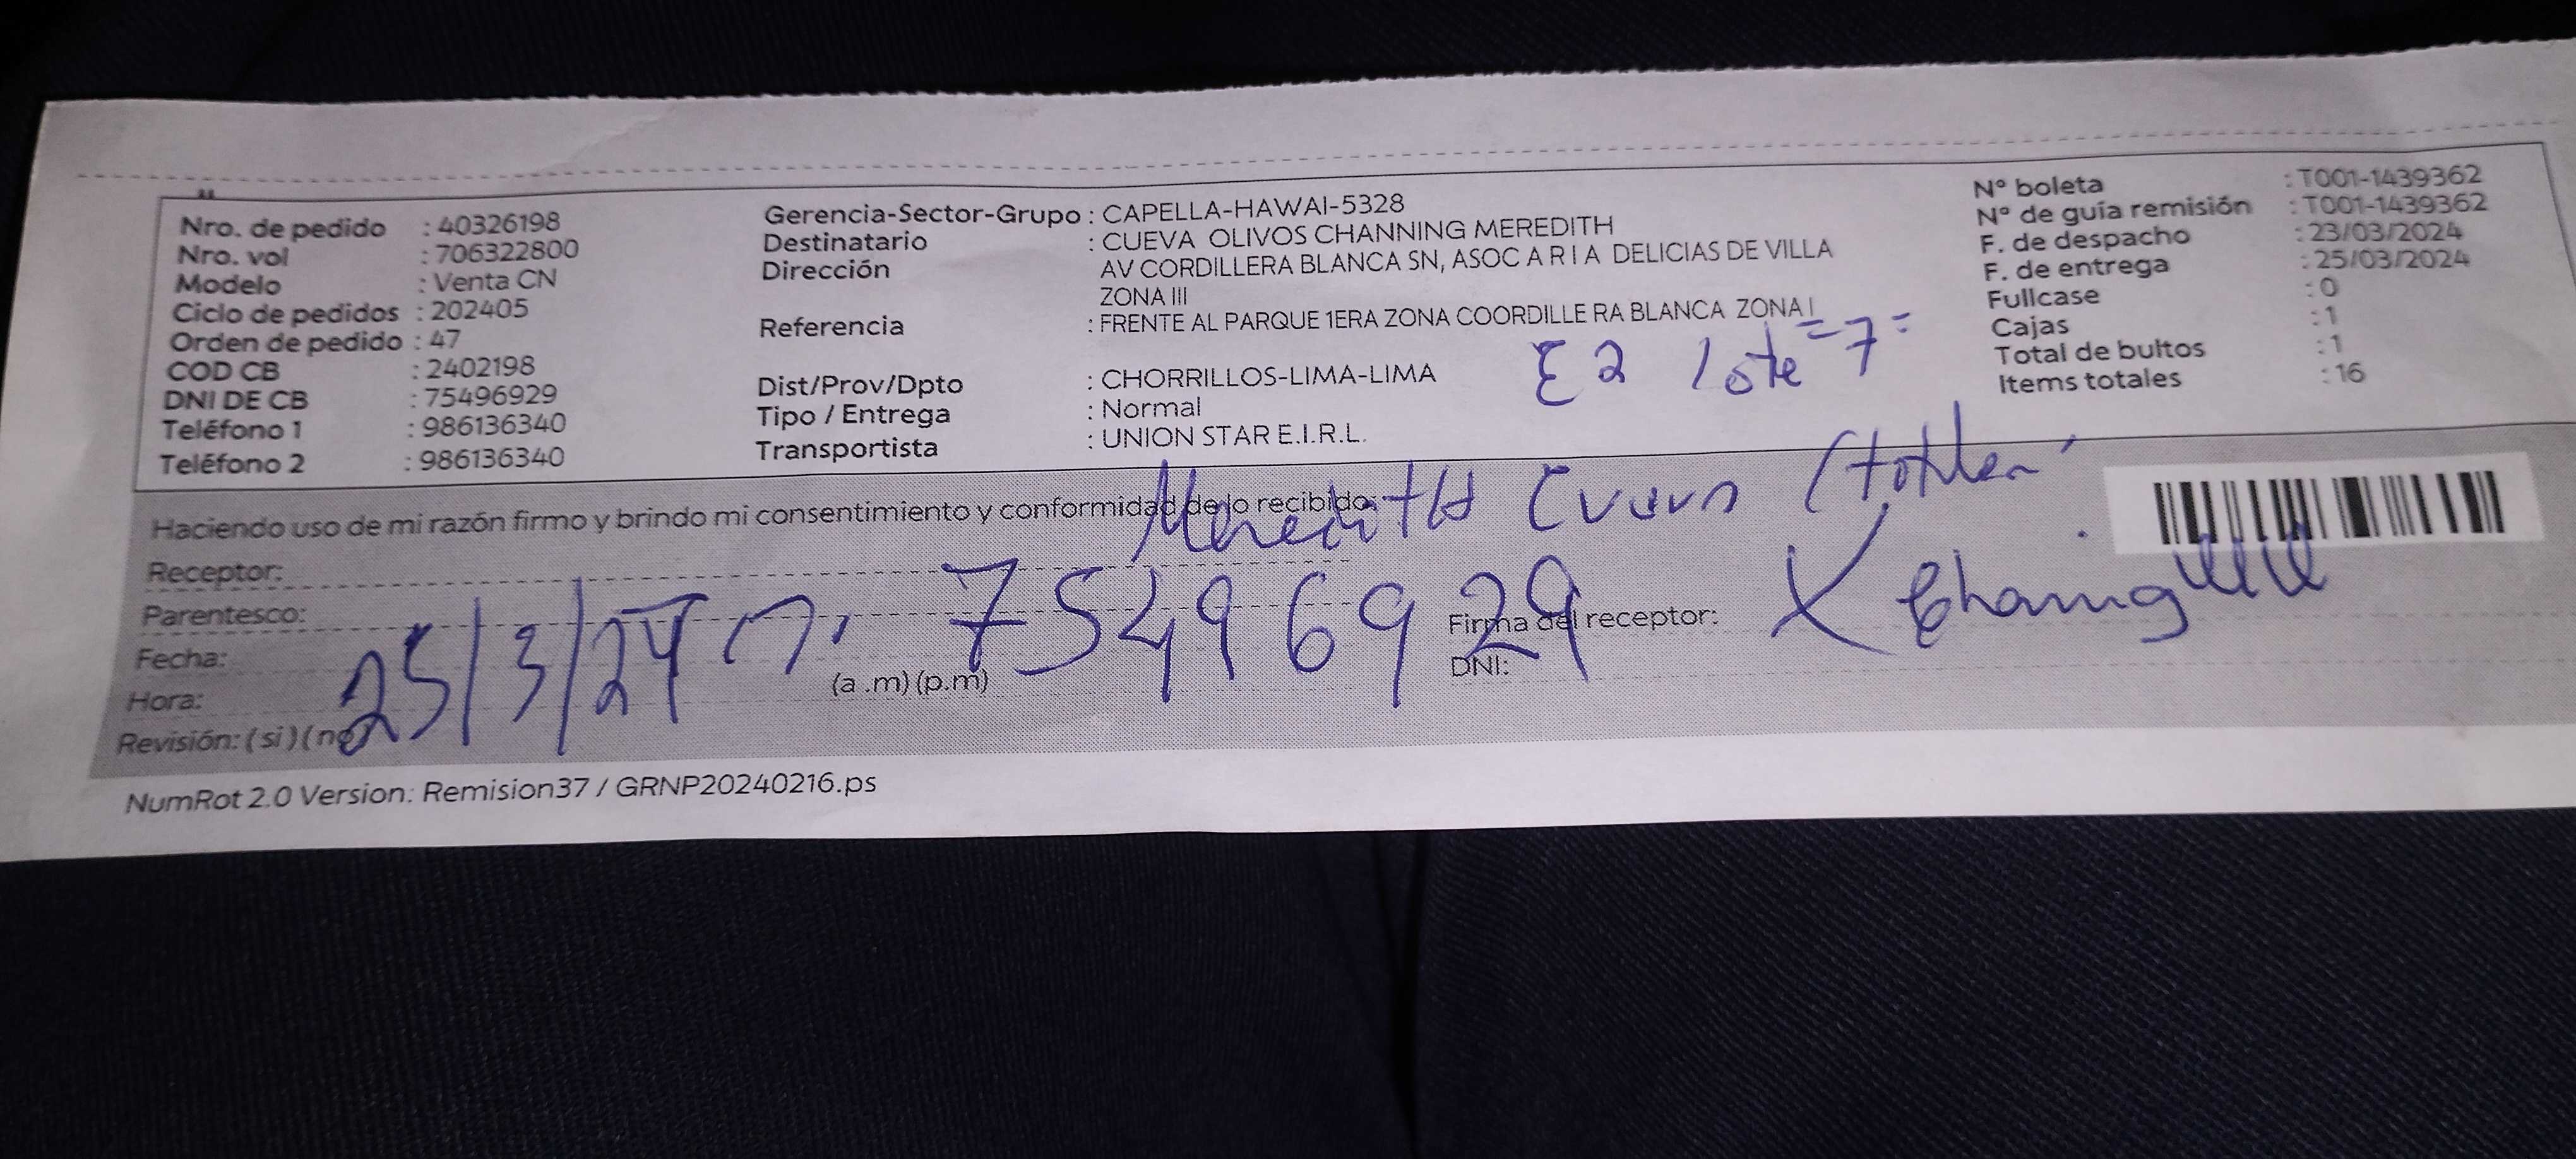 Nro. de pedido : 40326198
Nro. vol : 706322800
Modelo : Venta CN
Ciclo de pedidos : 202405
Orden de pedido : 47
COD CB : 2402198
DNI DE CB : 75496929
Teléfono 1 : 986136340
Teléfono 2 : 986136340
Gerencia-Sector-Grupo : CAPELLA-HAWAI-5328
Destinatario : CUEVA OLIVOS CHANNING MEREDITH
Dirección AV CORDILLERA BLANCA SN, ASOC A R I A DELICIAS DE VILLA
ZONA III
Referencia : FRENTE AL PARQUE 1ERA ZONA COORDILLE RA BLANCA ZONA I
E2 lote =7=
Dist/Prov/Dpto : CHORRILLOS-LIMA-LIMA
Tipo / Entrega : Normal
Transportista : UNION STAR E.I.R.L.
N° boleta : T001-1439362
N° de guía remisión : T001-1439362
F. de despacho : 23/03/2024
F. de entrega : 25/03/2024
Fullcase : 0
Cajas : 1
Total de bultos : 1
Items totales : 16
Haciendo uso de mi razón firmo y brindo mi consentimiento y conformidad de lo recibido:
MereditH
Receptor:
Parentesco:
Fecha:
Hora: (a .m) (p.m)
25/3/24
75496929
Firma del receptor: X
DNI:
Revisión: ( si ) ( no
NumRot 2.0 Version: Remision37 / GRNP20240216.ps